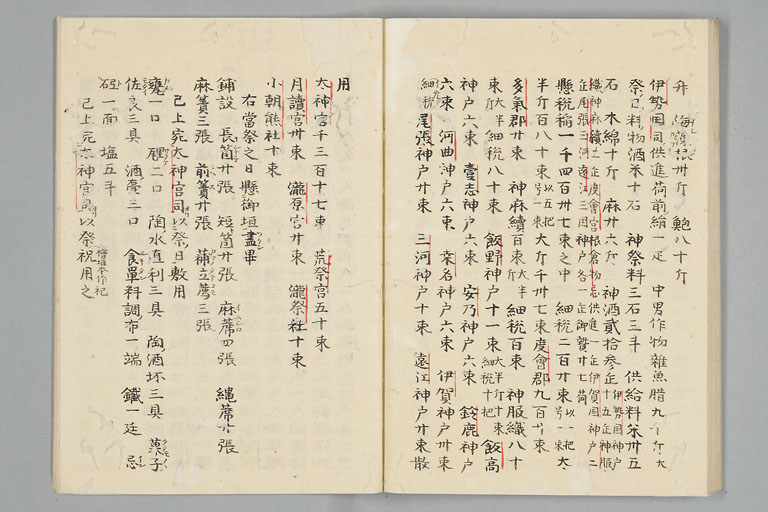 斗 海藻根卅斤 鮑八十斤
伊勢国司供進荷前絹一疋 中男作物雑魚腊九十斤大
祭日料物酒米十石 神祭料三石三斗 供給料米卅五
石 木綿十斤 麻廿六斤 神酒貳拾参缶
懸税稲一千四百卅七束之中 細税二百廿束 大
半斤百八十束 大斤千卅七束度會郡九百廿束
多氣郡廿束 神麻續百束 細税百束 神服織八十
束 細税八十束 飯野神戸十一束 飯高
神戸六束 壹志神戸六束 安乃神戸六束 鈴鹿神戸
六束 河曲神戸六束 桒名神戸六束 伊賀神戸廿束
細税 尾張神戸廿束 三河神戸十束 遠江神戸廿束散
用
太神宮千三百十七束 荒祭宮五十束
月讀宮卅束 瀧原宮廿束 瀧祭社十束
小朝熊社十束
右當祭之日懸御垣盡畢
鋪設 長筥廿張 短筥廿張 麻蓆四張 縄蓆廿張
麻簀三張 前簀廿張 蒲立薦三張
已上宛太神宮司以祭日敷用
甕一口 𤭖二口 陶水直利三具 陶酒坏三具 菓子
佐良三具 酒壺三口 食單料調布一端 鐵一廷 忌
砥一面 塩五斗
已上宛太神宮司以祭祝用之